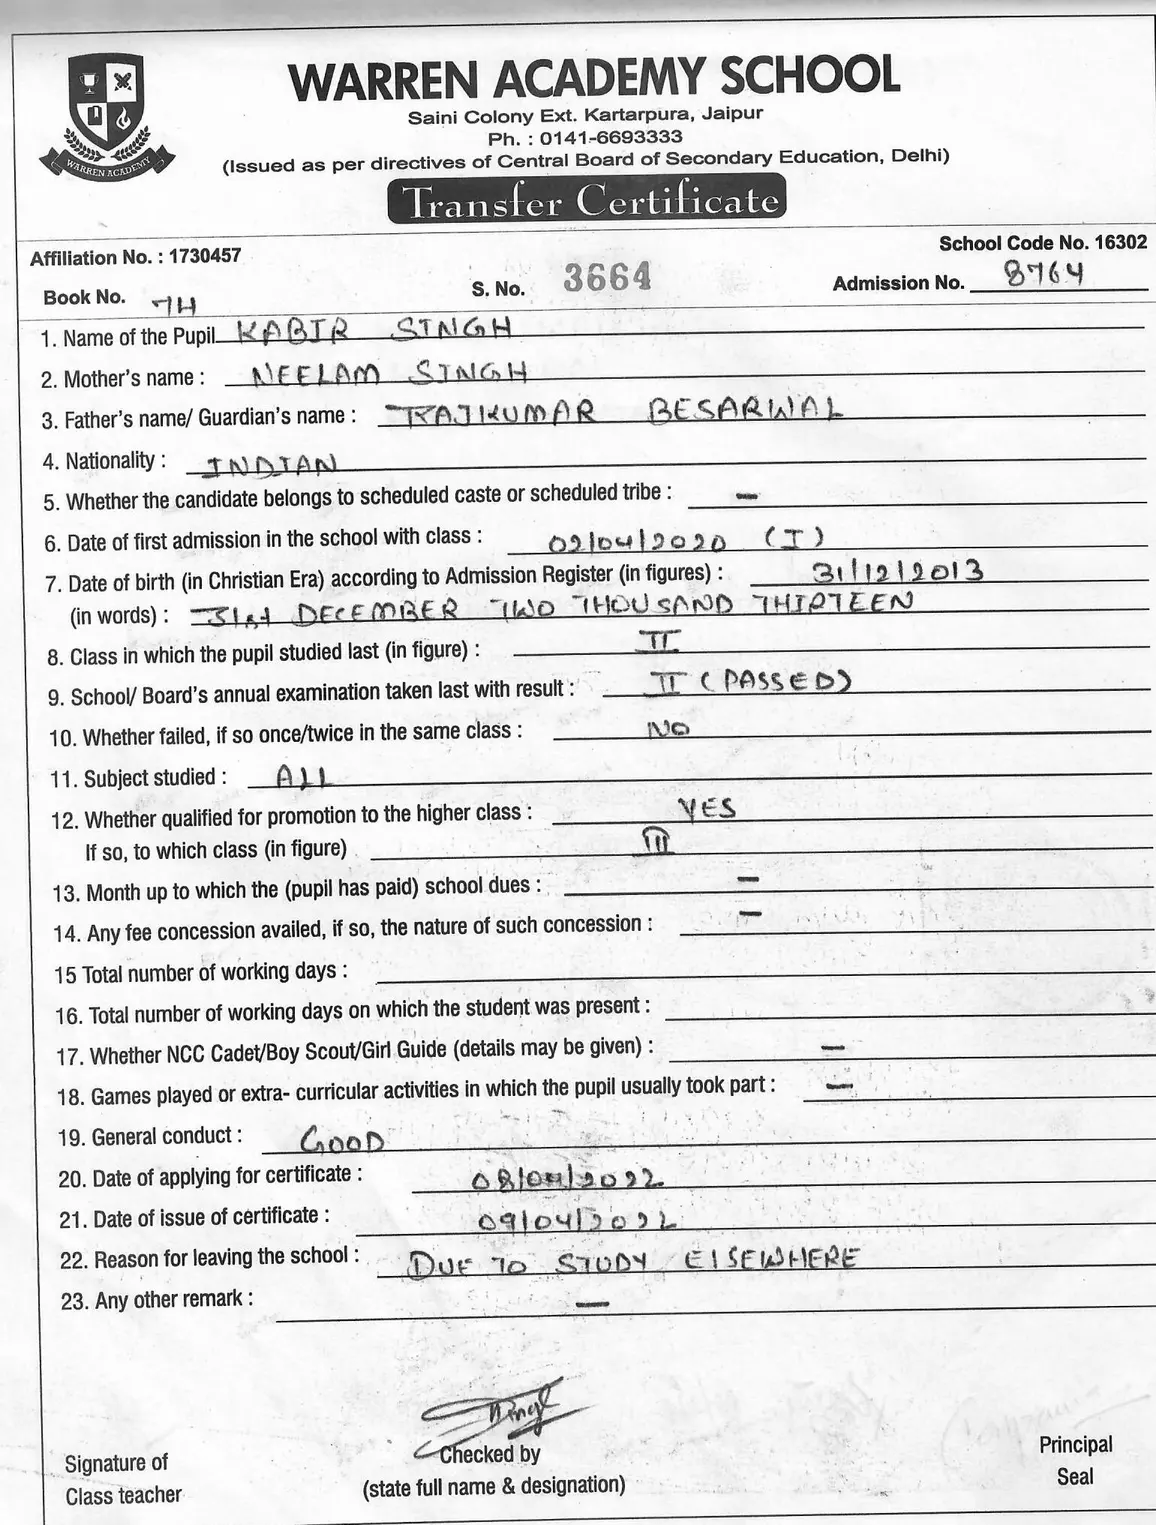 WARREN ACADEMY SCHOOL
Saini Colony Ext. Kartarpura, Jaipur
Ph. : 0141-6693333
(Issued as per directives of Central Board of Secondary Education, Delhi)
WARREN ACADEMY
Transfer Certificate
Affiliation No. : 1730457 School Code No. 16302
Book No. 74 S. No. 3664 Admission No. 8764
1. Name of the Pupil KABIR SINGH
2. Mother's name : NEELAM SINGH
3. Father's name/ Guardian's name : RAJKUMAR BESARWAL
4. Nationality : INDIAN
5. Whether the candidate belongs to scheduled caste or scheduled tribe : –
6. Date of first admission in the school with class : 02/04/2020 (I)
7. Date of birth (in Christian Era) according to Admission Register (in figures) : 31/12/2013
(in words) : 31st DECEMBER TWO THOUSAND THIRTEEN
8. Class in which the pupil studied last (in figure) : II
9. School/ Board's annual examination taken last with result : II (PASSED)
10. Whether failed, if so once/twice in the same class : NO
11. Subject studied : ALL
12. Whether qualified for promotion to the higher class : YES
If so, to which class (in figure) III
13. Month up to which the (pupil has paid) school dues : –
14. Any fee concession availed, if so, the nature of such concession : –
15 Total number of working days :
16. Total number of working days on which the student was present :
17. Whether NCC Cadet/Boy Scout/Girl Guide (details may be given) : –
18. Games played or extra- curricular activities in which the pupil usually took part : –
19. General conduct : GOOD
20. Date of applying for certificate : 08/04/2022
21. Date of issue of certificate : 09/04/2022
22. Reason for leaving the school : DUE TO STUDY ElSEWHERE
23. Any other remark : –
Signature of
Class teacher
Checked by
(state full name & designation)
Principal
Seal